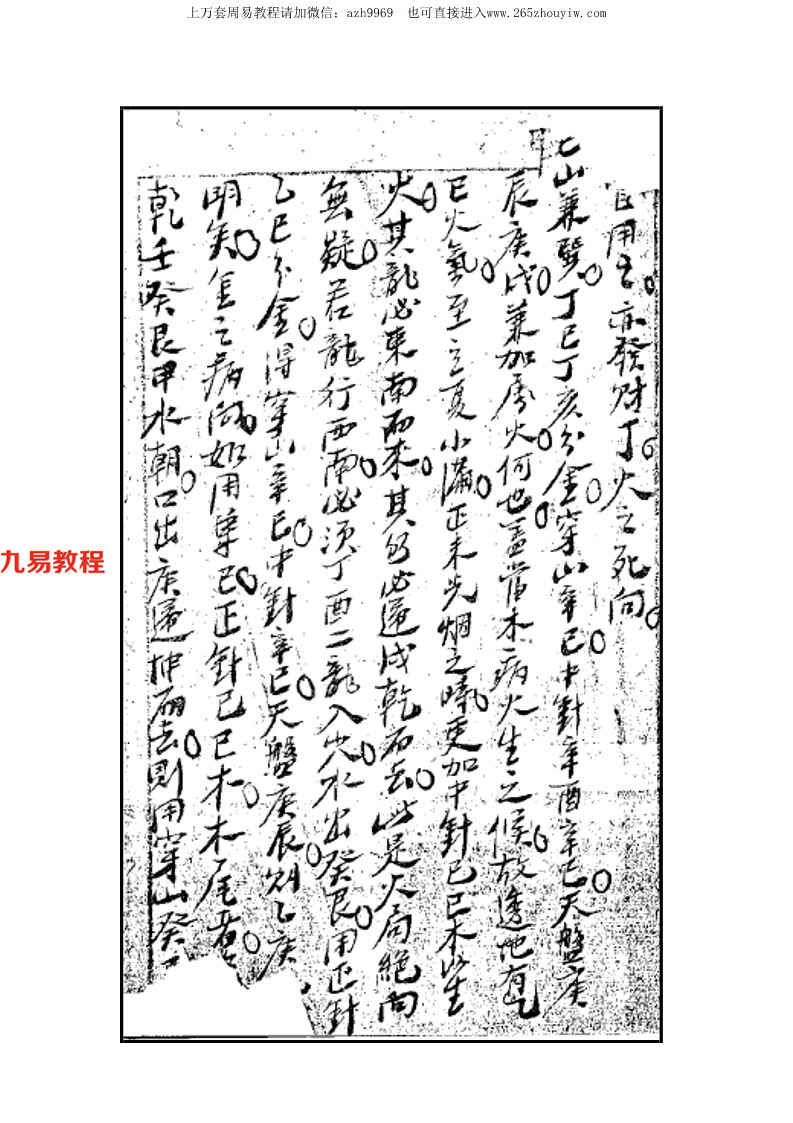 上万套周易教程请加微信：azh9969 也可直接进入www.265zhouyiw.com
用之亦發财丁火之死向
山兼巽丁巳丁亥分金穿山辛巳中針辛酉辛巳天盤庚
辰庚戌兼加厚火何也蓋當木病火生之候故透地有乙
巳火氣至立夏小滿正未先烟之嗦更加中針己巳木以生
火其龍必東南而來其水必遶戌乾而去此是火局絕向
無疑若龍行西南必須丁酉二龍入穴水出癸艮用正針
乙巳分金得穿山辛巳中針辛巳天盤庚辰則乙庚
明矣金之病 如用单巳正針己巳木木尾者
乾壬癸艮甲水朝口出庚遶坤而去則用穿山癸
九易教程